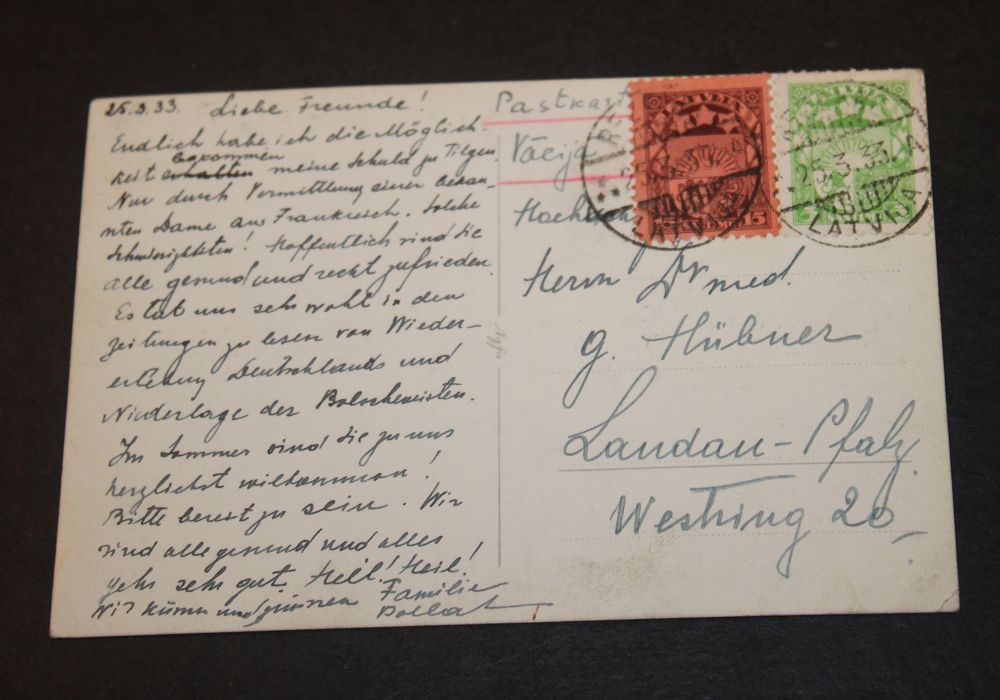 25.3.33. Liebe Freunde!
Endlich habe ich die Möglich-
bekommen
keit erhalten meine Schuld zu Tilgen.
Nur durch Vermittlung einer bekan-
nten Dame aus Frankreich. Solche
Schwierigkeiten! Hoffentlich sind Sie
alle gesund und recht zufrieden.
Es tat uns sehr wohl in den
Zeitungen zu lesen von Wieder-
Deutschlands und
Niederlage der Bolschewisten.
Im Sommer sind Sie zu uns
herzlichst willkommen!
Bitte bereit zu sein. Wir
sind alle gesund und alles
geht sehr gut. Heil! Heil!
Wir küssen und grüssen Familie
Pollat
Pastkart
Vācija
Herrn Dr med.
G. Hübner
Landau-Pfalz
Westring 20
LATVIJA
25.3.33
LATVIJA
25.3.33
LATVIJA
15